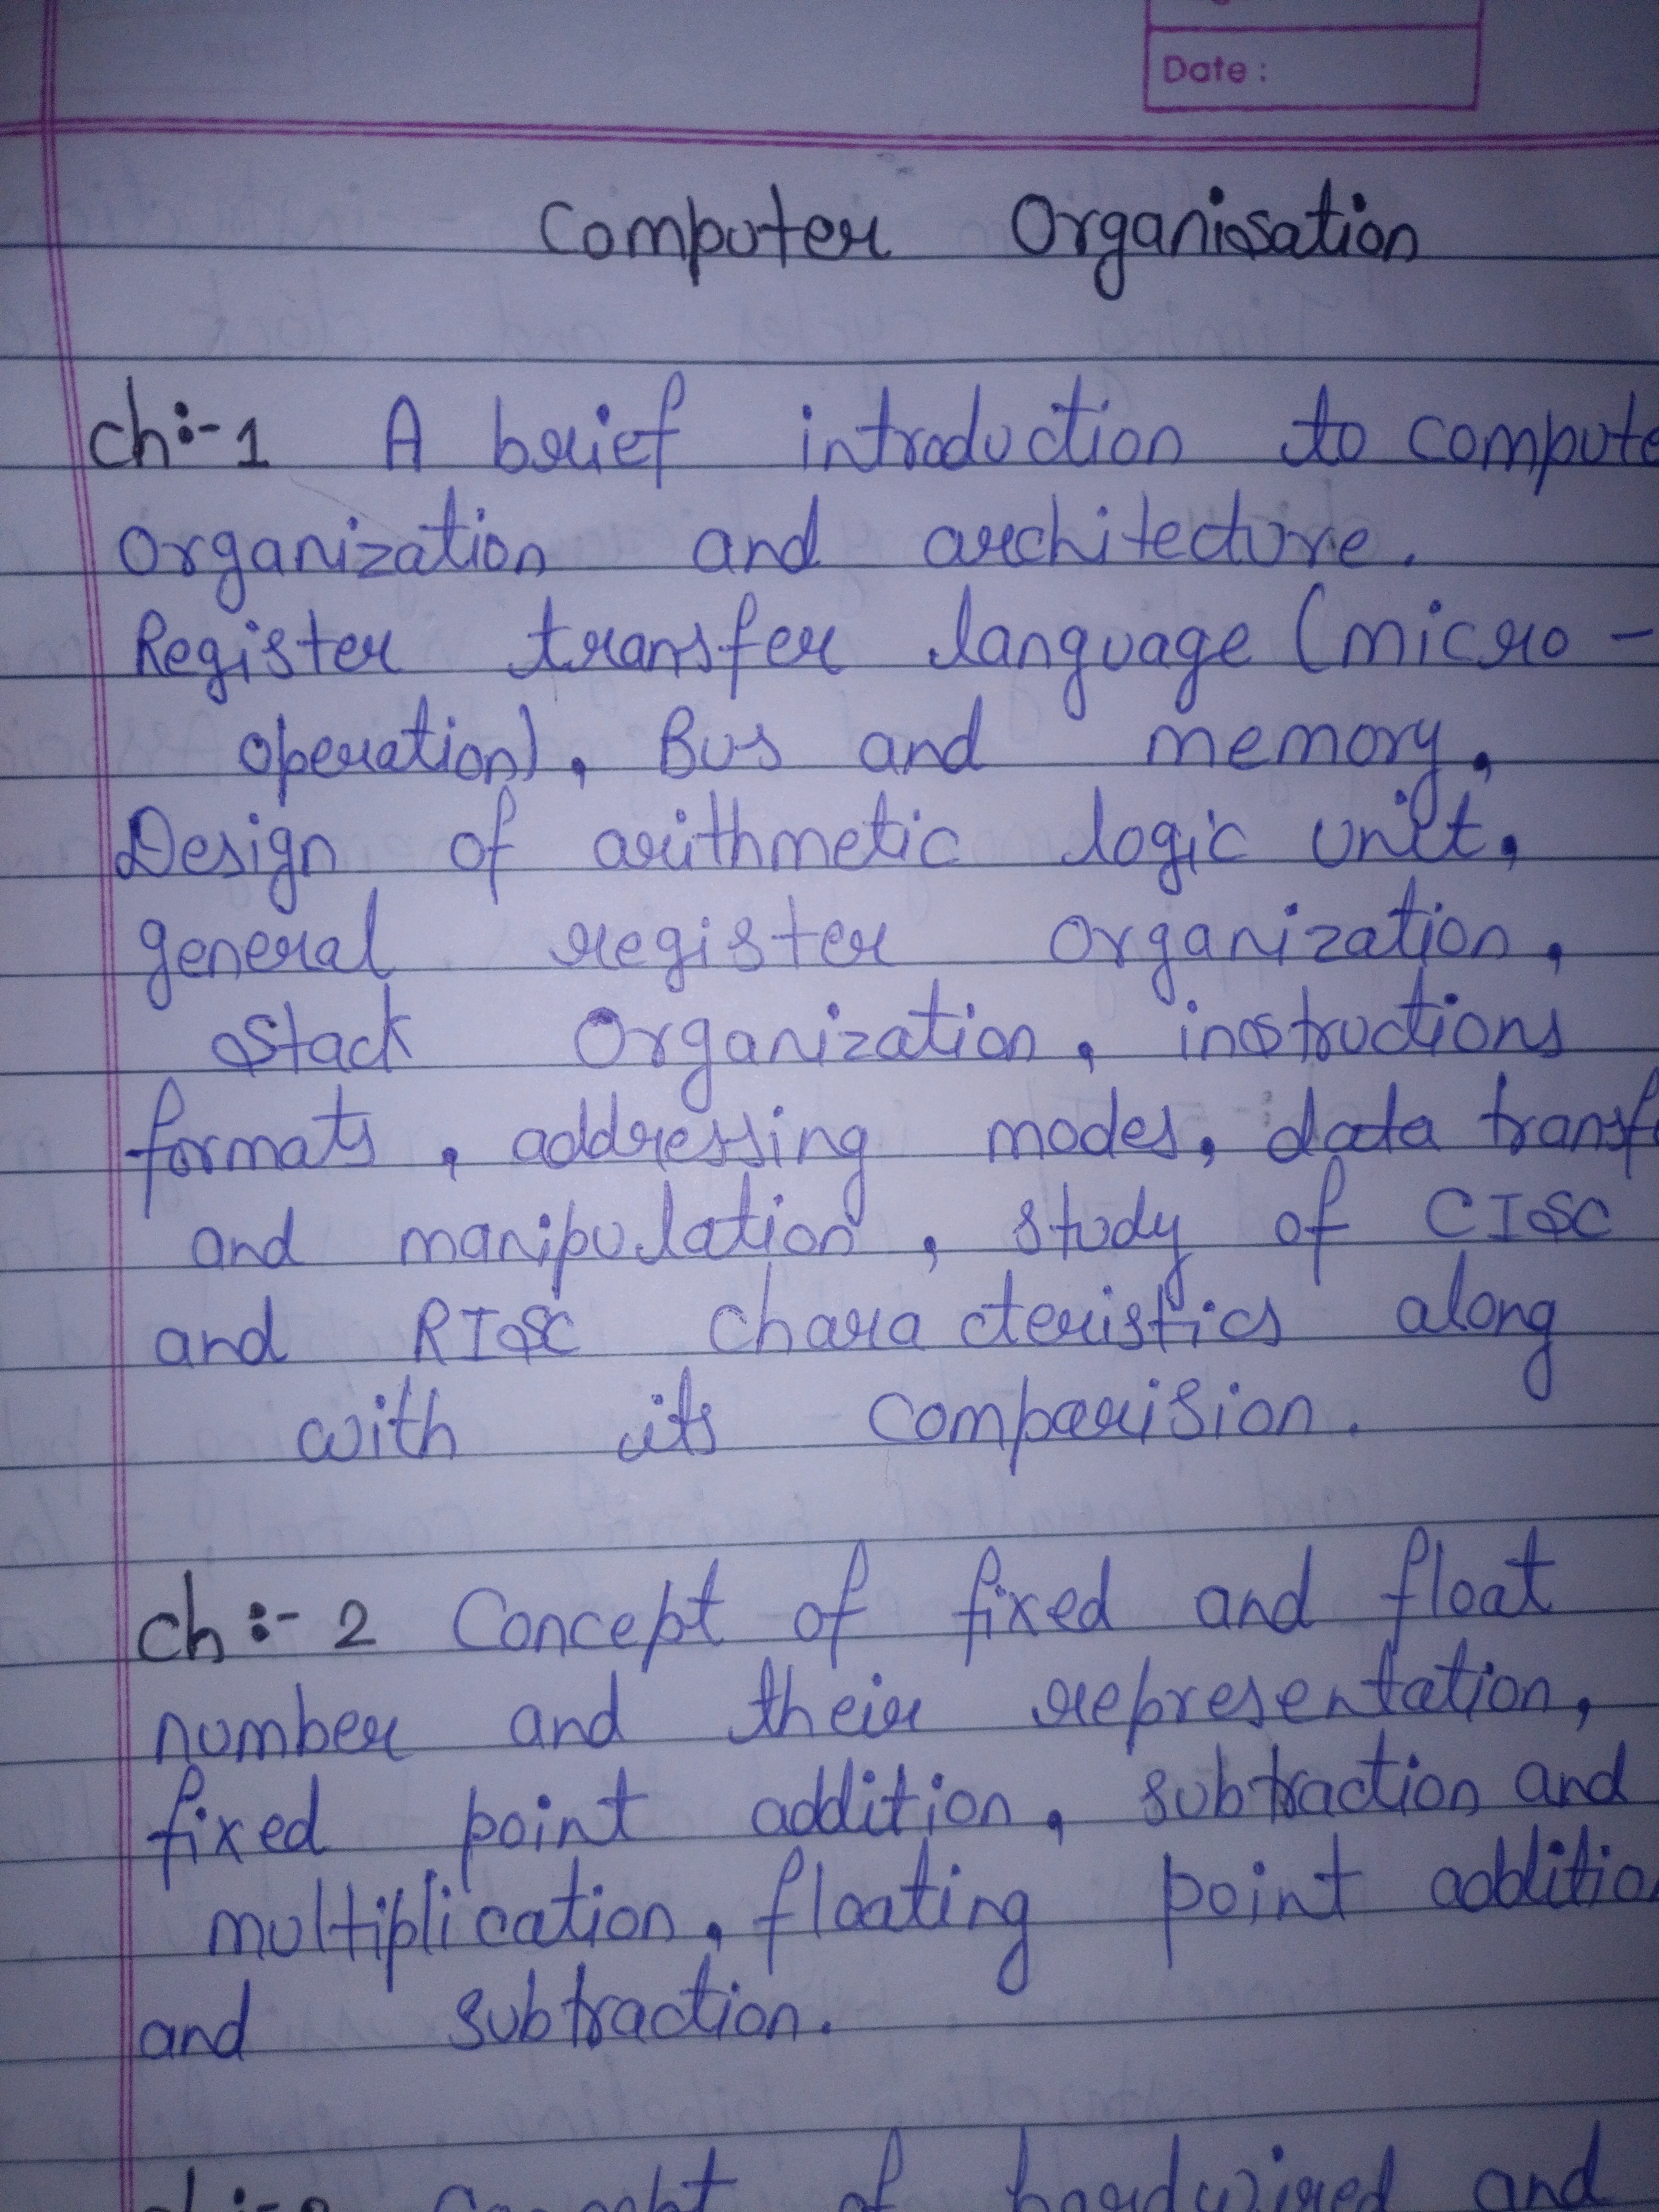 Date :
Computer Organisation
ch:-1 A brief introduction to compute
organization and architecture.
Register transfer language (micro -
operation), Bus and memory,
Design of arithmetic logic unit,
general register organization,
stack organization, instructions
formats, addressing modes, data transf
and manipulation, study of CISC
and RISC characteristics along
with its comparision.
ch:- 2 Concept of fixed and float
number and their representation,
fixed point addition, subtraction and
multiplication, floating point additio
and subtraction.
Concept of hardwired and